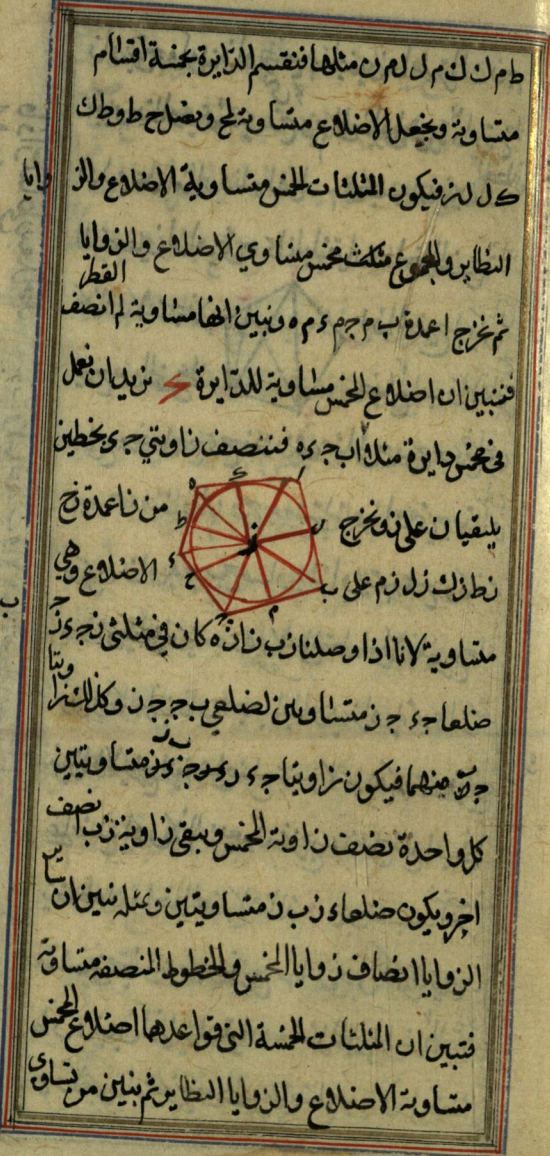 ط م ك ك م ل ل م ن مثلها فنقسم الدايرة بخمسة اقسام
متساوية ونجعل الاضلاع متساوية لح ونصل ح ط و ط ك
ك ل ل ن فيكون المثلثات الخمس متساوية الاضلاع والزوايا
النظاير والمجموع مخمس متساوي الاضلاع والزوايا
ثم نخرج اعمدة ب م ج م ء م ه ونبين انها مساوية ل م نصف القطر
فنبين ان اضلاع الخمس مساوية للدايرة نريد ان نعمل
في مخمس دايرة مثلا اب ج ء ه فننصف زاويتي ج ء بخطين
يلتقيان على ز ونخرج من ز اعمدة ز ح
ز ط ز ك ز ل ز م على الاضلاع وهي
متساوية لانا اذا وصلنا ز ب ز ا ز ه كان في مثلثي ز ج ء ز ج ب
ضلعا ج ء ج ز متساويين لضلعي ب ج ج ز وكذلك زاويتا
ج منهما فيكون زاويتا ج ء ز ج ب ز متساويتين
كل واحدة نصف زاوية الخمس ويبقى زاوية ز ب ا نصف
اخر ويكون ضلعا ء ز ب ز متساويتين وبمثله نبين ان ساير
الزوايا انصاف زوايا الخمس والخطوط المنصفة متساوية
فتبين ان المثلثات الخمسة التي قواعدها اضلاع الخمس
متساوية الاضلاع والزوايا النظاير ثم نبين من تساوي